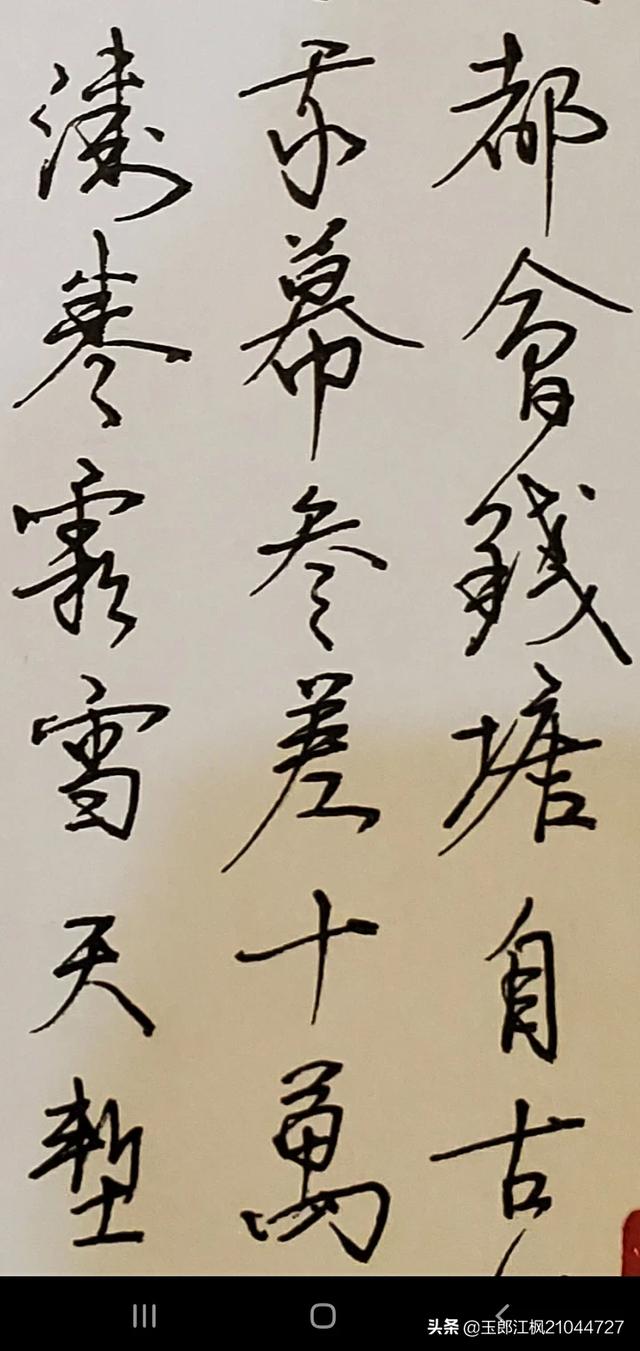 都會錢塘自古
幕參差十萬
濤卷霜雪天塹
头条 @玉郎江枫21044727